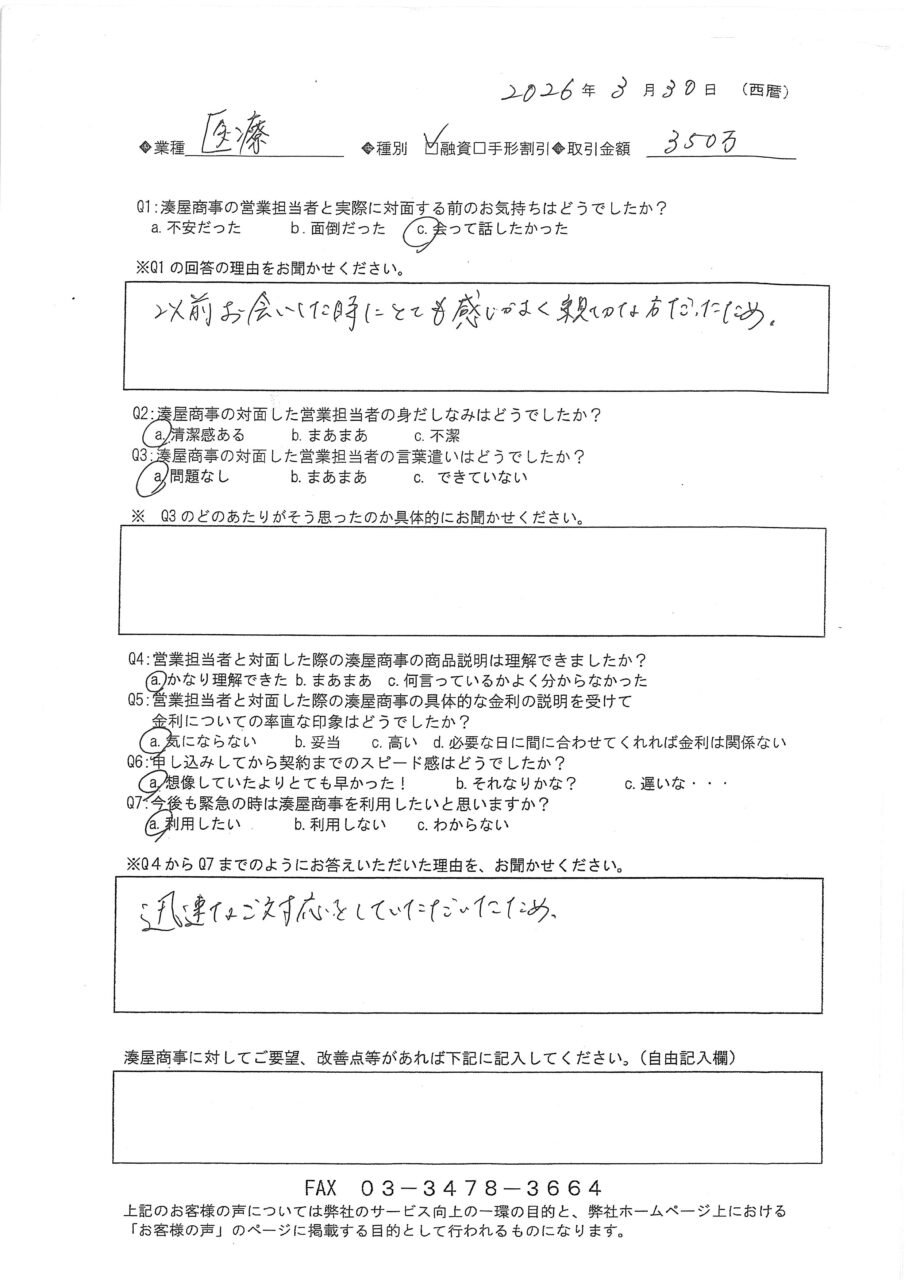 2026年3月30日 (西暦)
◆業種 医療 ◆種別 ☑融資□手形割引◆取引金額 350万
Q1:湊屋商事の営業担当者と実際に対面する前のお気持ちはどうでしたか?
a.不安だった b.面倒だった c.会って話したかった
※Q1の回答の理由をお聞かせください。
以前お会いした時にとても感じがよく親切な方だったため。
Q2:湊屋商事の対面した営業担当者の身だしなみはどうでしたか?
a.清潔感ある b.まあまあ c.不潔
Q3:湊屋商事の対面した営業担当者の言葉遣いはどうでしたか?
a問題なし b.まあまあ c. できていない
※ Q3のどのあたりがそう思ったのか具体的にお聞かせください。
Q4:営業担当者と対面した際の湊屋商事の商品説明は理解できましたか?
a.かなり理解できた b.まあまあ c.何言っているかよく分からなかった
Q5:営業担当者と対面した際の湊屋商事の具体的な金利の説明を受けて
金利についての率直な印象はどうでしたか?
a.気にならない b.妥当 c.高い d.必要な日に間に合わせてくれれば金利は関係ない
Q6:申し込みしてから契約までのスピード感はどうでしたか?
a.想像していたよりとても早かった! b.それなりかな? c.遅いな・・・
Q7:今後も緊急の時は湊屋商事を利用したいと思いますか?
a.利用したい b.利用しない c.わからない
※Q4からQ7までのようにお答えいただいた理由を、お聞かせください。
迅速なご対応をしていただいたため、
湊屋商事に対してご要望、改善点等があれば下記に記入してください。(自由記入欄)
FAX 03-3478-3664
上記のお客様の声については弊社のサービス向上の一環の目的と、弊社ホームページ上における
「お客様の声」のページに掲載する目的として行われるものになります。